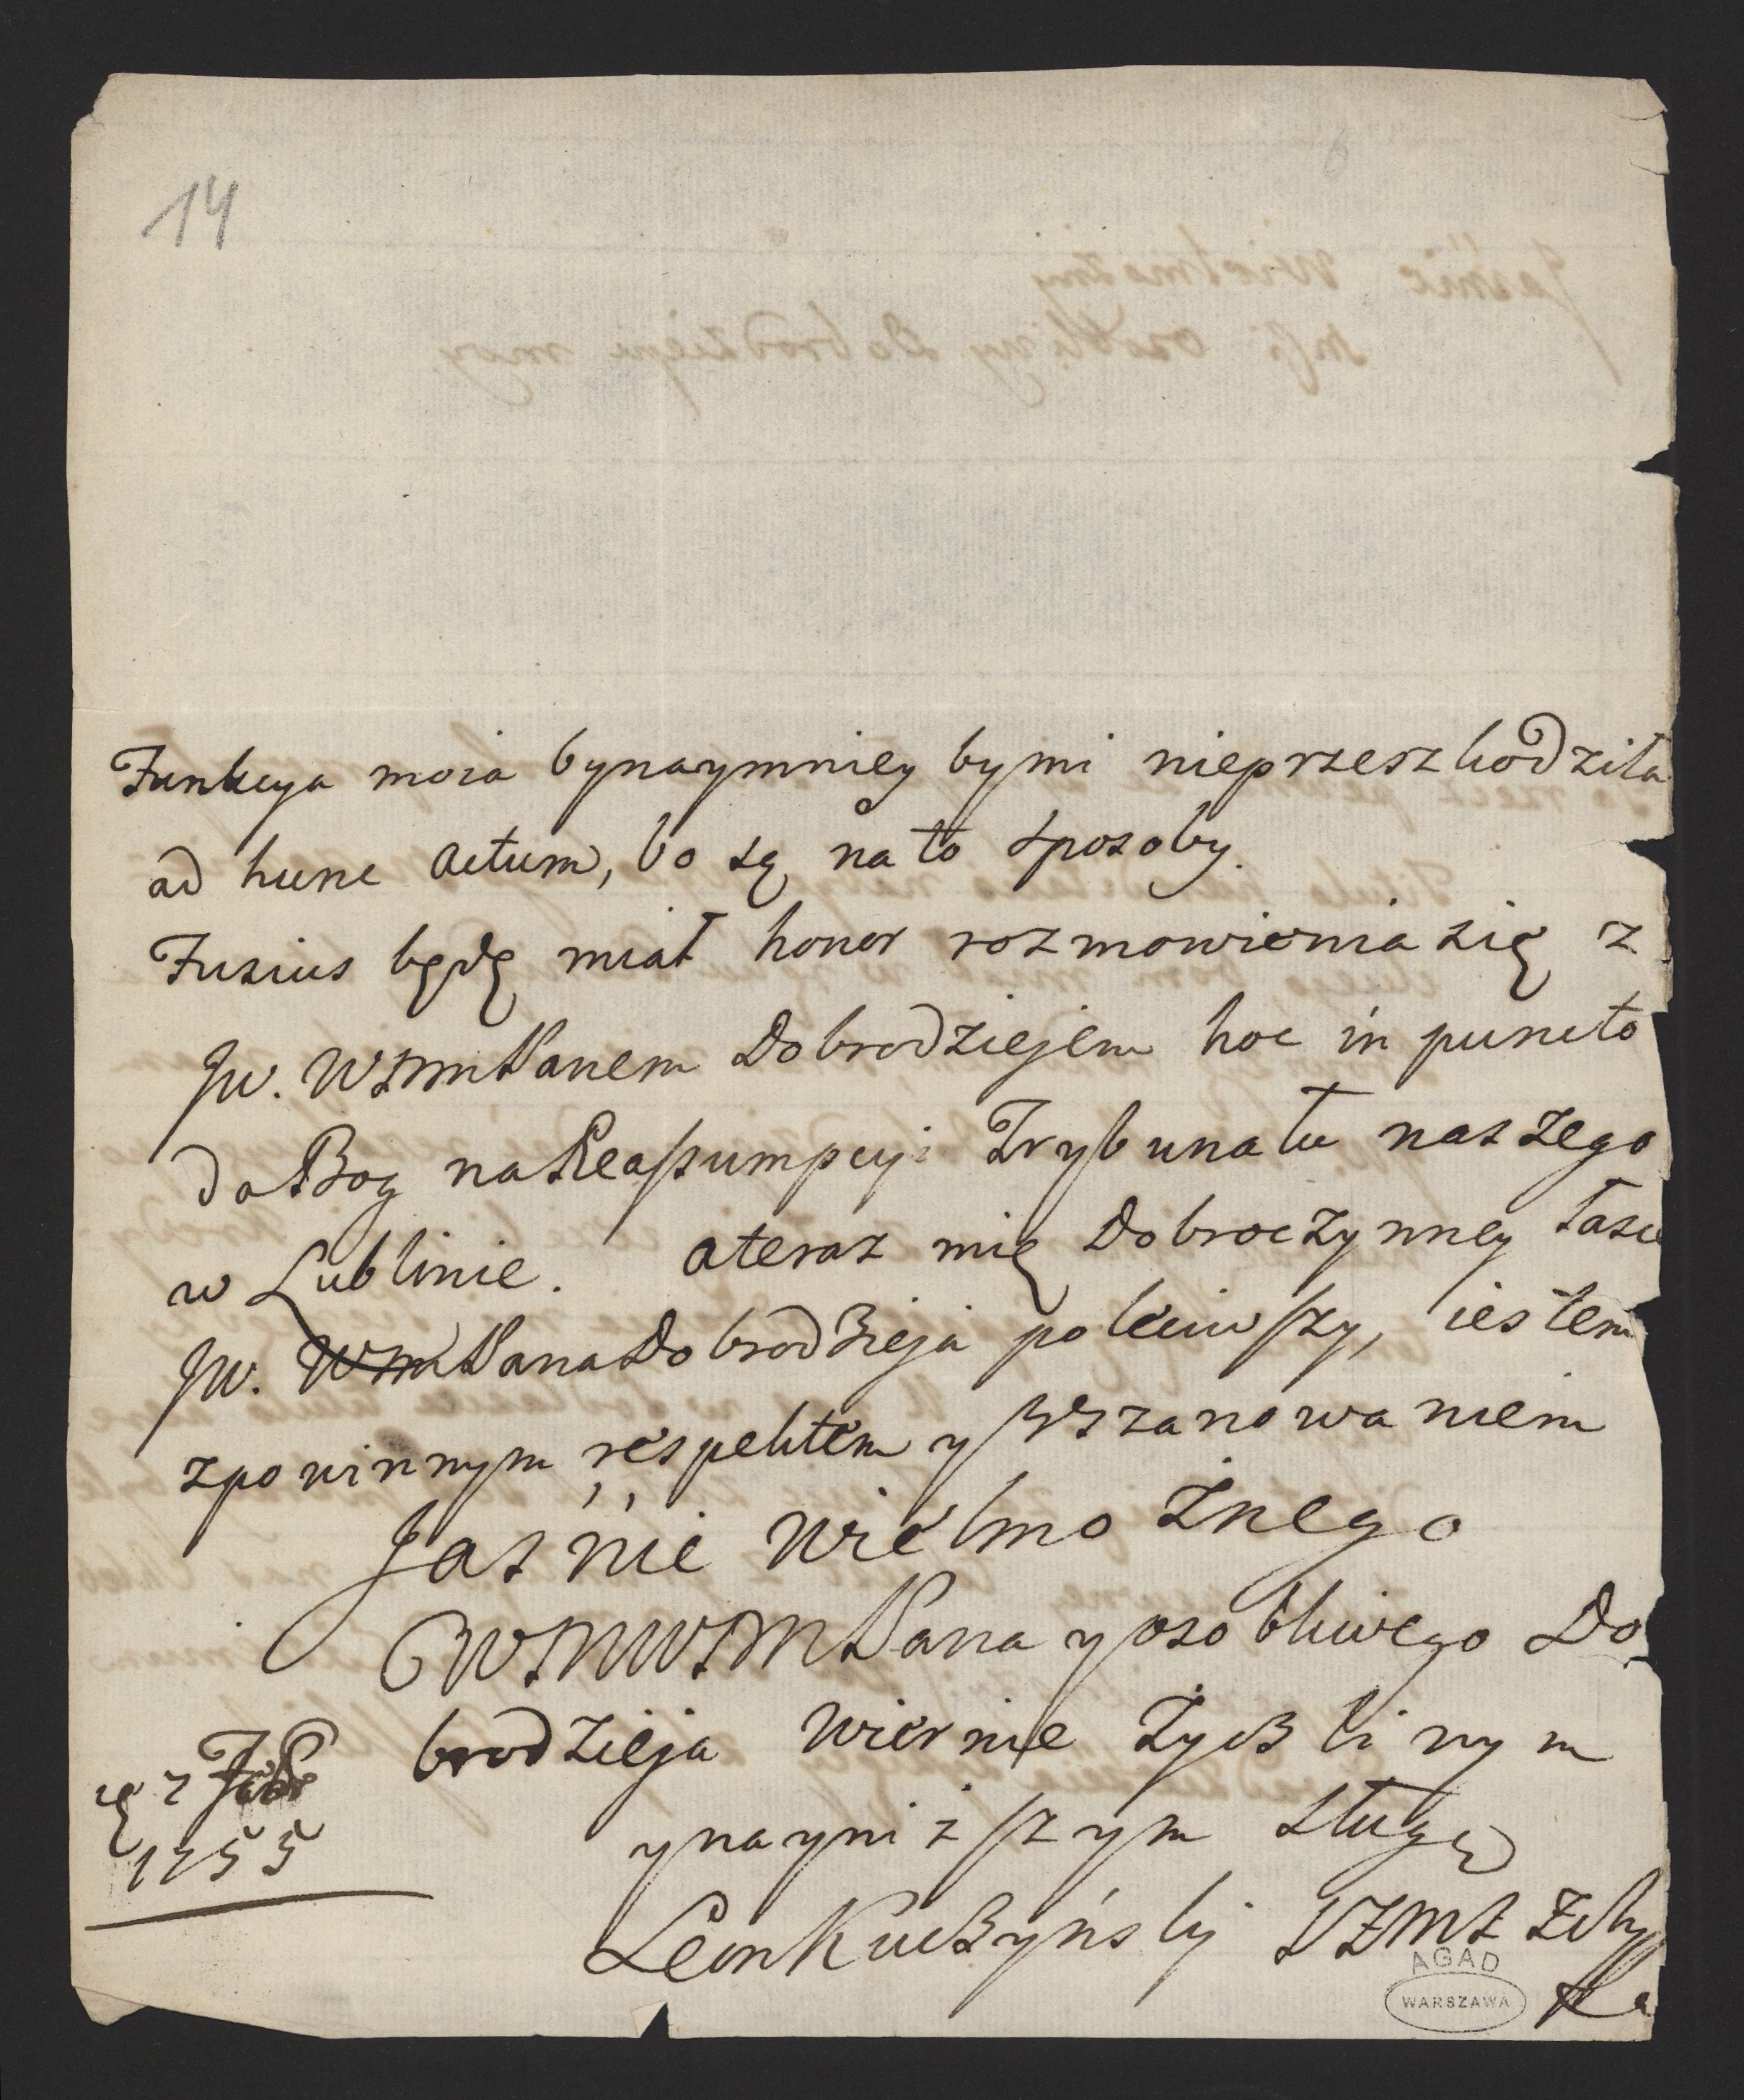 14
Funkcya moia bynaymniey by mi nieprzeszkodziła
ad hunc actum, bo są na to sposoby.
Fusius będę miał honor rozmowienia się z
JW. WMM Panem Dobrodziejem hoc in puncto
da Bog na Reassumpcyi Trybunału naszego
w Lublinie. a teraz mię Dobroczynney łasce
JW. WM Pana Dobrodzieja poleciwszy, iestem
z powinnym respektem y uszanowaniem
Jaśnie Wielmożnego
WMMWM Pana y osobliwego Do
brodzieja wiernie życzliwym
y nayniższym sługą
Leon Kuczyński
1755
AGAD
WARSZAWA